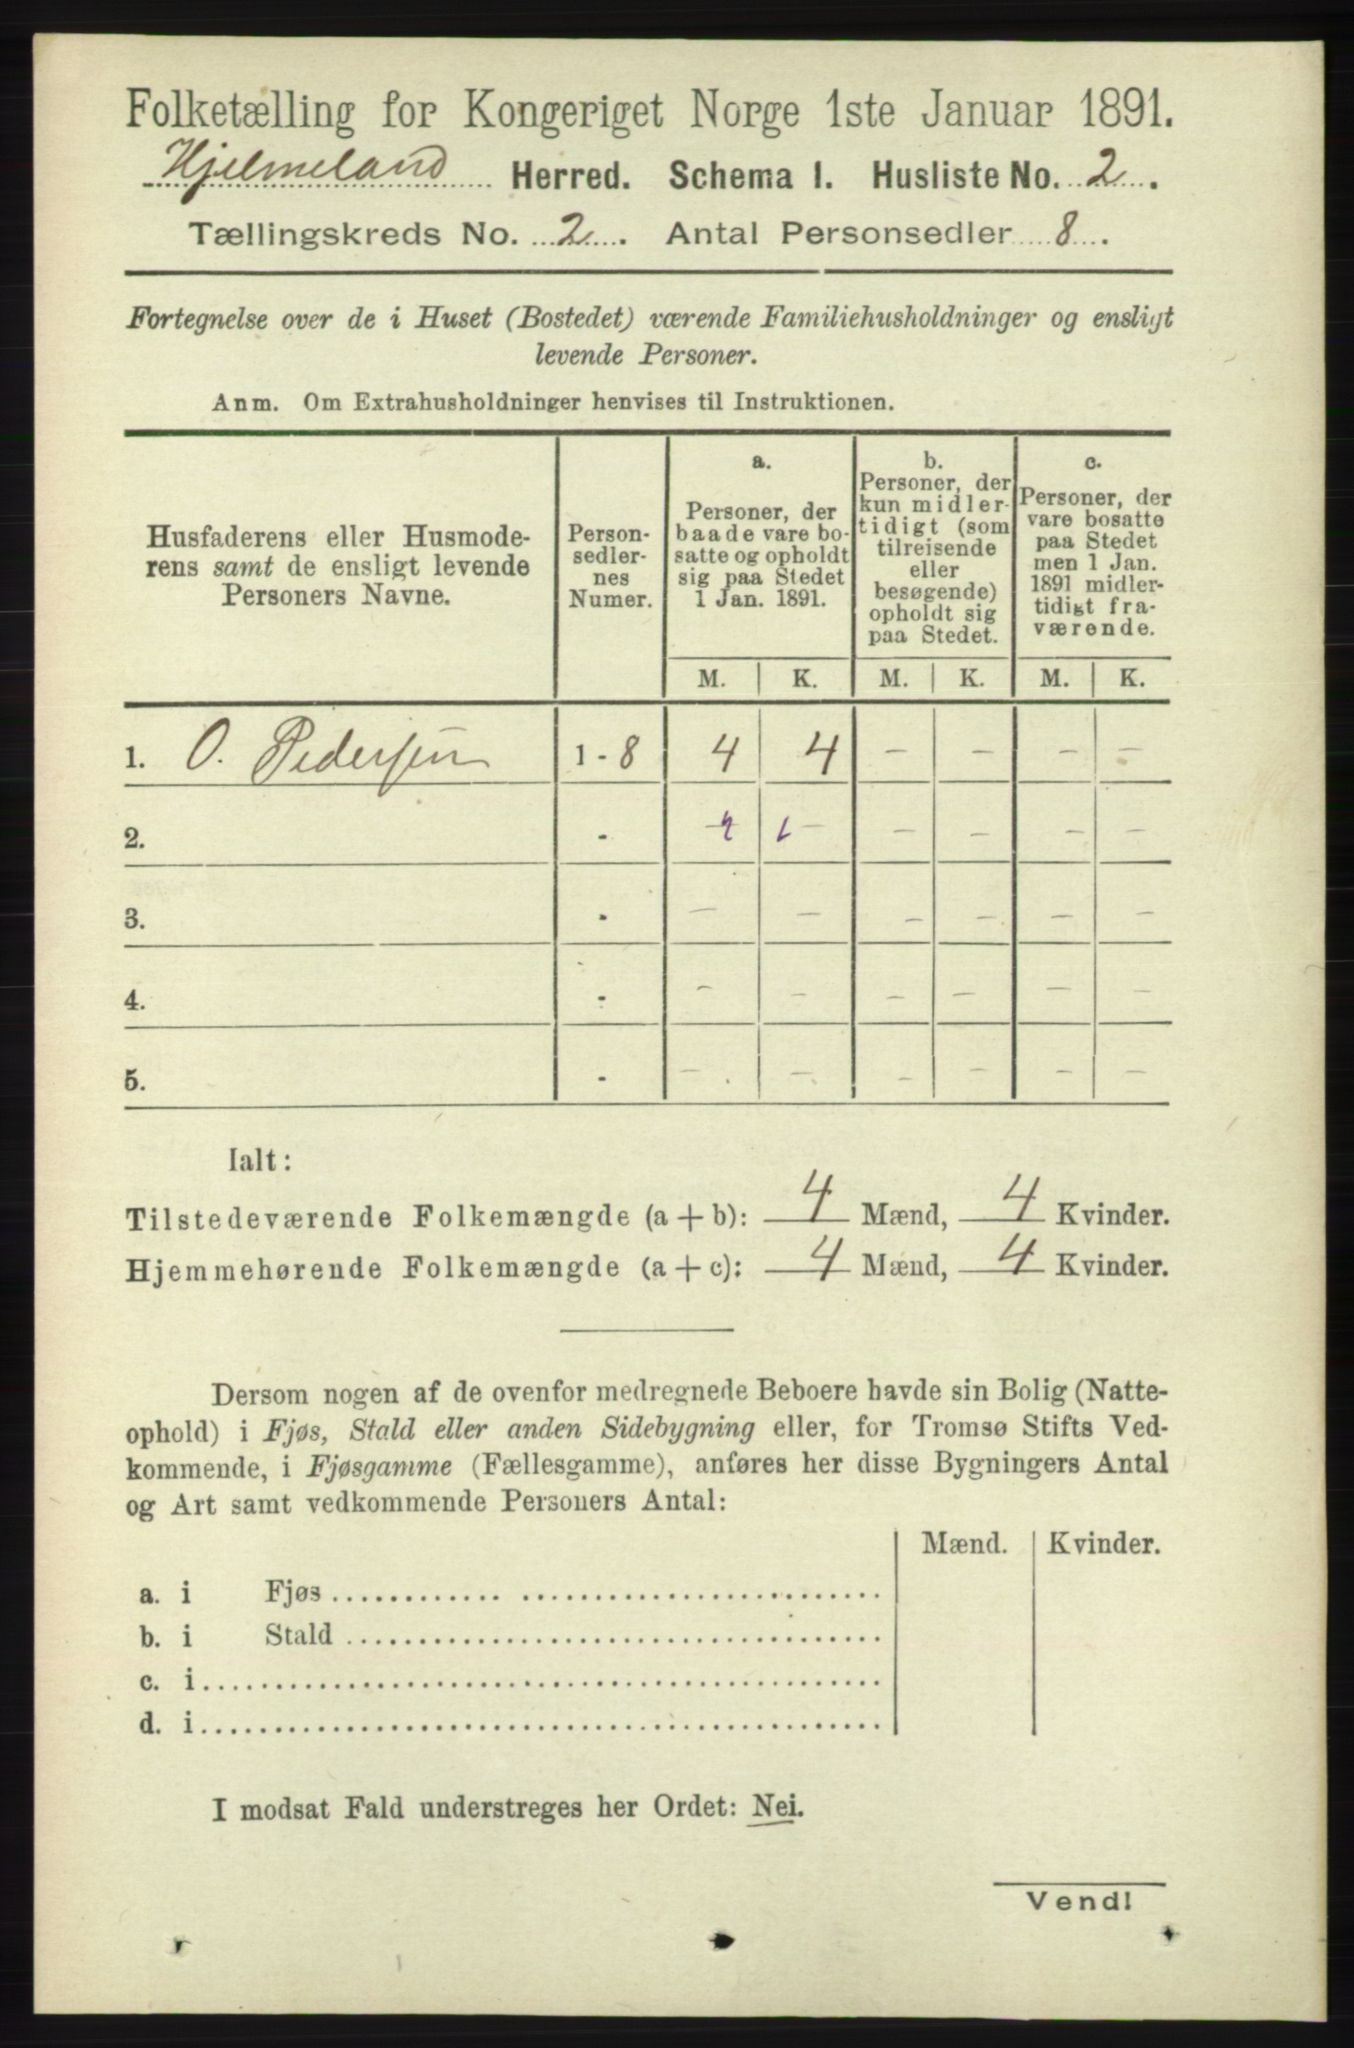 Folketælling for Kongeriget Norge 1ste Januar 1891.
Hjelmeland Herred. Schema 1. Husliste No. 2.
Tællingskreds No. 2. Antal Personsedler 8.
Fortegnelse over de i Huset (Bostedet) værende Familiehusholdninger og ensligt
levende Personer.
Anm. Om Extrahusholdninger henvises til Instruktionen.
Husfaderens eller Husmode-
rens samt de ensligt levende
Personers Navne.
Person-
sedler-
nes
Numer.
a.
Personer, der
baade vare bo-
satte og opholdt
sig paa Stedet
1 Jan. 1891.
b.
Personer, der
kun midler-
tidigt (som
tilreisende
eller
besøgende)
opholdt sig
paa Stedet.
c.
Personer, der
vare bosatte
paa Stedet
men 1 Jan.
1891 midler-
tidigt fra-
værende.
M. K. M. K. M. K.
1. O. Pedersen 1 - 8 4 4 - - - -
2. - - - - -
3. - - - - - - -
4. - - - - - - -
5. - - - - - - -
Ialt:
Tilstedeværende Folkemængde (a + b): 4 Mænd, 4 Kvinder.
Hjemmehørende Folkemængde (a + c): 4 Mænd, 4 Kvinder.
Dersom nogen af de ovenfor medregnede Beboere havde sin Bolig (Natte-
ophold) i Fjøs, Stald eller anden Sidebygning eller, for Tromsø Stifts Ved-
kommende, i Fjøsgamme (Fællesgamme), anføres her disse Bygningers Antal
og Art samt vedkommende Personers Antal:
Mænd. Kvinder.
a. i Fjøs
b. i Stald
c. i
d. i
I modsat Fald understreges her Ordet: Nei.
Vend!